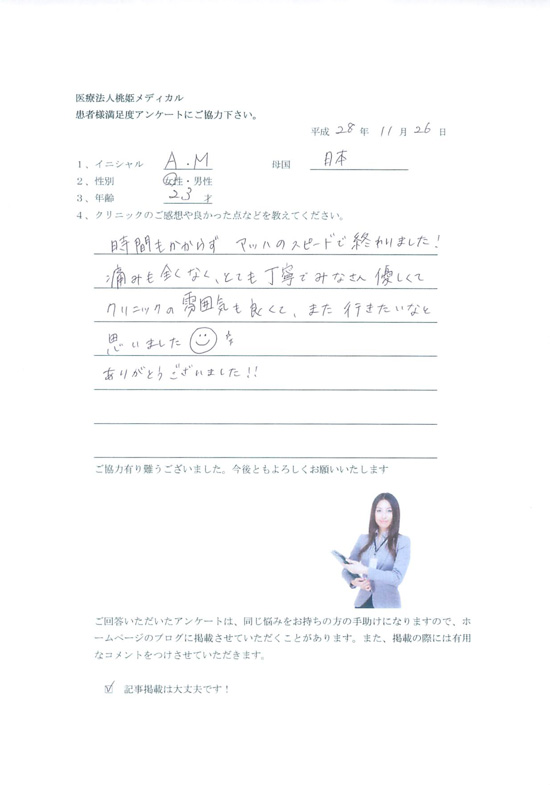 医療法人桃姫メディカル
患者様満足度アンケートにご協力下さい。
平成 28 年 11 月 26 日
1、イニシャル A.M 母国 日本
2、性別 女性・男性
3、年齢 23 才
4、クリニックのご感想や良かった点などを教えてください。
時間もかからず アッハのスピードで終わりました!
痛みも全くなく、とても丁寧でみなさん優しくて
クリニックの雰囲気も良くて、また行きたいなと
思いました
ありがとうございました!!
ご協力有り難うございました。今後ともよろしくお願いいたします
ご回答いただいたアンケートは、同じ悩みをお持ちの方の手助けになりますので、ホ
ームページのブログに掲載させていただくことがあります。また、掲載の際には有用
なコメントをつけさせていただきます。
☑ 記事掲載は大丈夫です!